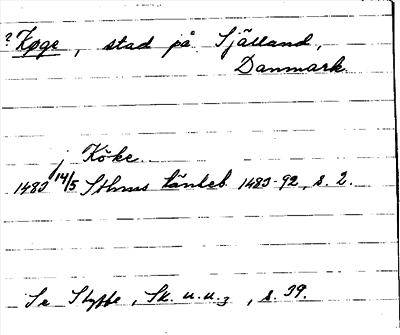 ? Køge, stad på Själland,
Danmark.
j Köke.
1483 14/5 Sthms tänkeb 1483-92, s. 2.
Se Styffe, Sk. u. u. 3, s. 39.